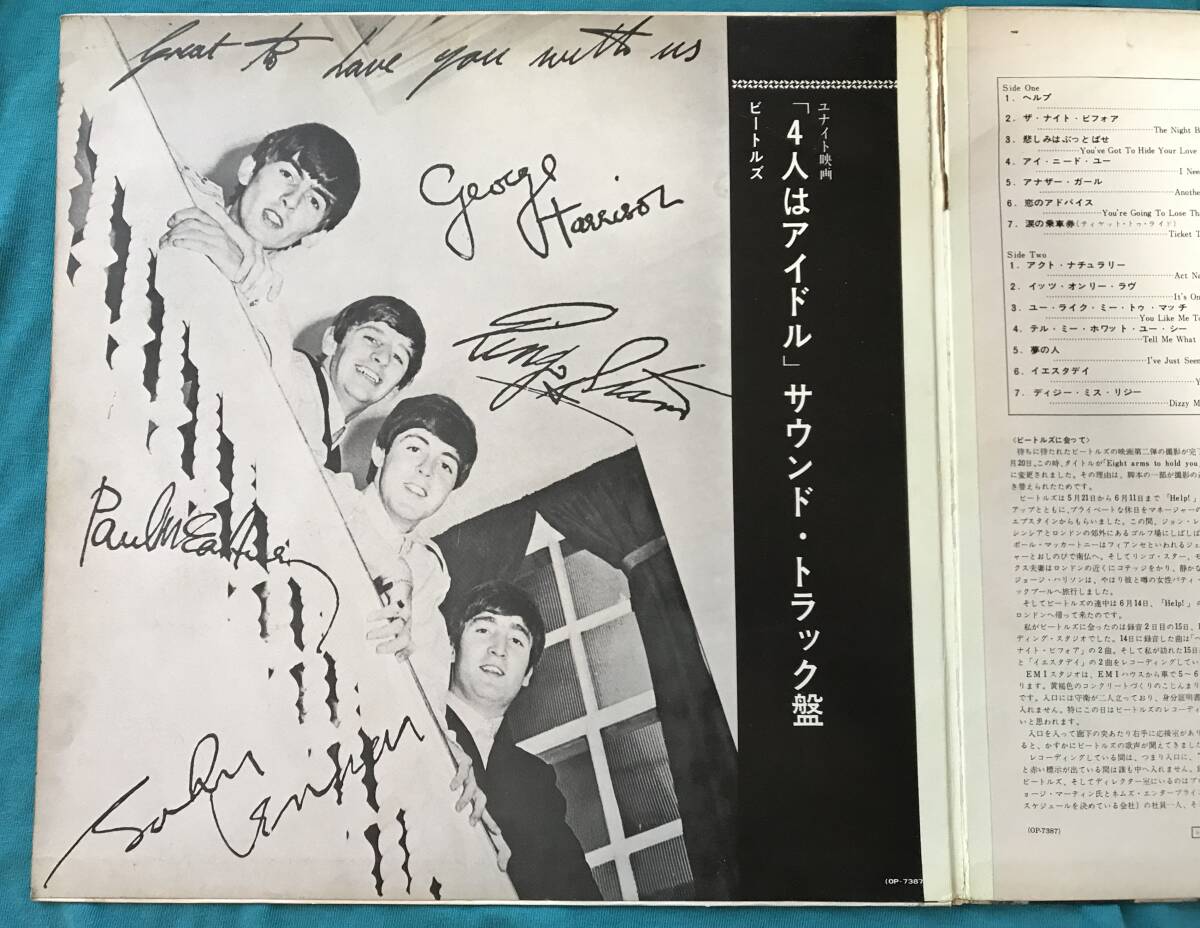 Great to have you with us
George
Harrison
Ringo Starr
Paul McCartney
John
Lennon
ユナイト映画
「4人はアイドル」サウンド・トラック盤
ビートルズ
(OP-7387
Side One
1. ヘルプ
2. ザ・ナイト・ビフォア
The Night B
3. 悲しみはぶっとばせ
You've Got To Hide Your Love
4. アイ・ニード・ユー
I Nee
5. アナザー・ガール
Anothe
6. 恋のアドバイス
You're Going To Lose Th
7. 涙の乗車券(ティケット・トゥ・ライド)
Ticket T
Side Two
1. アクト・ナチュラリー
Act Na
2. イッツ・オンリー・ラヴ
It's On
3. ユー・ライク・ミー・トゥ・マッチ
You Like Me To
4. テル・ミー・ホワット・ユー・シー
Tell Me What
5. 夢の人
I've Just Seen
6. イエスタデイ
Y
7. ディジー・ミス・リジー
Dizzy M
〈ビートルズに会って〉
待ちに待たれたビートルズの映画第二弾の撮影が完了
月20日。この時、タイトルが「Eight arms to hold you
に変更されました。その理由は、脚本の一部が撮影の
き替えられたためです。
ビートルズは5月21日から6月11日まで「Help!」
アップとともに、プライベートな休日をマネージャーの
エプスタインからもらいました。この間、ジョン・レ
シンシアとロンドンの郊外にあるゴルフ場にしばしば
ポール・マッカートニーはフィアンセといわれるジェ
ャーとおしのびで南仏へ。そしてリンゴ・スター、モ
クス夫妻はロンドンの近くにコテッジをかり、静かな
ジョージ・ハリソンは、やはり彼と噂の女性パティ・
ックプールへ旅行しました。
そしてビートルズの連中は6月14日、「Help!」の
ロンドンへ帰って来たのです。
私がビートルズに会ったのは録音2日目の15日、
ディング・スタジオでした。14日に録音した曲は「
ナイト・ビフォア」の2曲。そして私が訪れた15日
と「イエスタデイ」の2曲をレコーディングしてい
EMIスタジオは、EMIハウスから車で5〜6
ります。黄褐色のコンクリートづくりのこじんまり
です。入口には守衛が二人立っており、身分証明書
入れません。特にこの日はビートルズのレコーディ
いと思われます。
入口を入って廊下の突あたり右手に応接室があり
ると、かすかにビートルズの歌声が聞えてきました
レコーディングしている間は、つまり入口に、
と赤い標示が出ている間は誰も中へ入れません。
ビートルズ、そしてディレクター室にいるのはプロ
ョージ・マーティン氏とネムズ・エンタープライ
スケジュールを決めている会社)の社員一人、そ
(OP-7387)